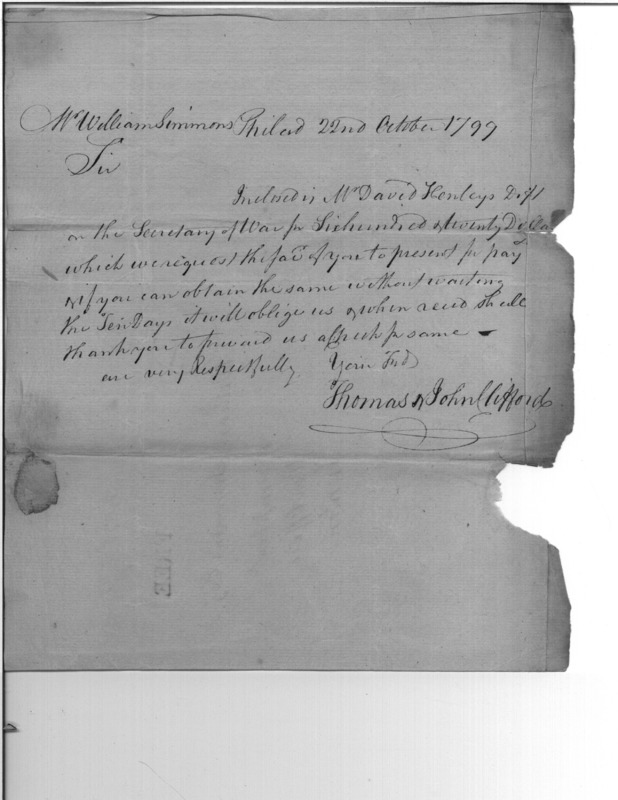 Mr William Simmons Philad 22nd October 1799
Sir
Inclosed is Mr David Henleys Dft
on the Secretary of War for Sixhundred & twenty Dollars
which we request the fav of you to present for pay
& if you can obtain the same without waiting
the Ten Days it will oblige us & when recd shall
thank you to forward us a Check for same
are very Respectfully Your Frds
Thomas & John Clifford
FREE